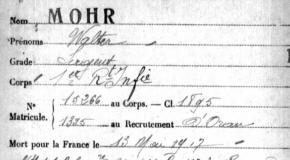 Nom MOHR
Prénoms Walter
Grade Sergent
Corps 1er Rt Infie
N° 13266 au Corps. — Cl. 1895
Matricule. 1335 au Recrutement d'Oran
Mort pour la France le 13 Mai 1917